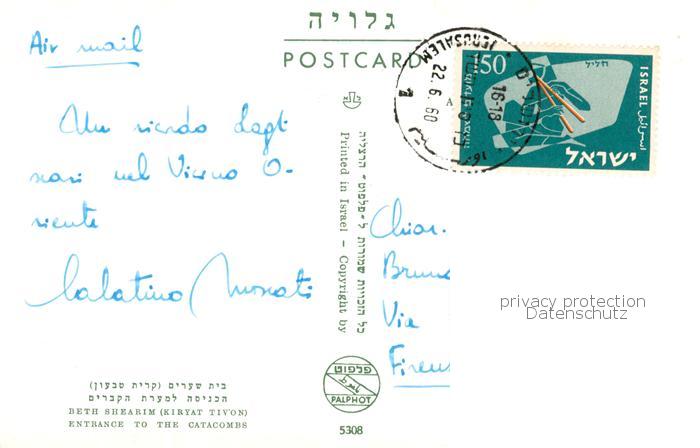 גלויה
POSTCARD
Air mail
Un ricordo dagli
scavi nel Vicino O-
riente
Sabatino Moscati
Chiar.
Brun
Via
Firen
privacy protection
Datenschutz
JERUSALEM
22.6.60
16-18
1
150
חליל
מועדים לשמחה
ISRAEL
اسرائيل
ישראל
כל הזכויות שמורות ל-פלפוט - הרצליה
Printed in Israel – Copyright by
פלפוט
PALPHOT
5308
בית שערים (קרית טבעון)
הכניסה למערת הקברים
BETH SHEARIM (KIRYAT TIV'ON)
ENTRANCE TO THE CATACOMBS